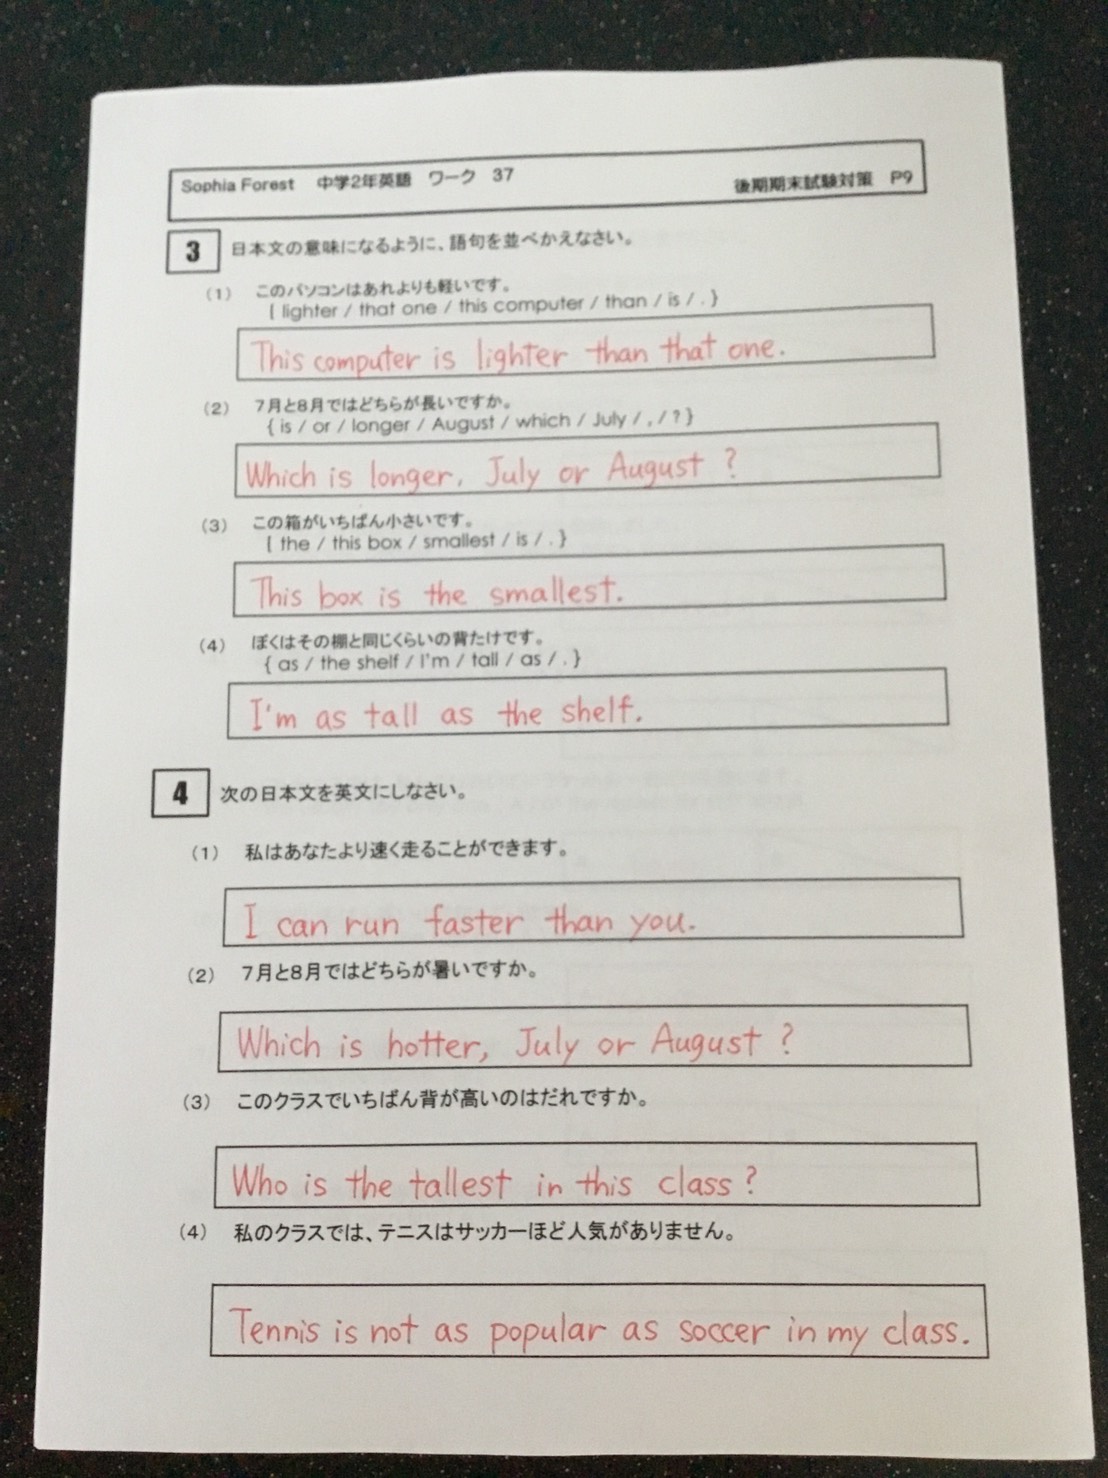 Sophia Forest 中学2年英語 ワーク 37
後期期末試験対策 P9
3 日本文の意味になるように、語句を並べかえなさい。
(1) このパソコンはあれよりも軽いです。
{ lighter / that one / this computer / than / is / . }
This computer is lighter than that one.
(2) 7月と8月ではどちらが長いですか。
{ is / or / longer / August / which / July / , / ? }
Which is longer, July or August ?
(3) この箱がいちばん小さいです。
{ the / this box / smallest / is / . }
This box is the smallest.
(4) ぼくはその棚と同じくらいの背たけです。
{ as / the shelf / I'm / tall / as / . }
I'm as tall as the shelf.
4 次の日本文を英文にしなさい。
(1) 私はあなたより速く走ることができます。
I can run faster than you.
(2) 7月と8月ではどちらが暑いですか。
Which is hotter, July or August ?
(3) このクラスでいちばん背が高いのはだれですか。
Who is the tallest in this class ?
(4) 私のクラスでは、テニスはサッカーほど人気がありません。
Tennis is not as popular as soccer in my class.